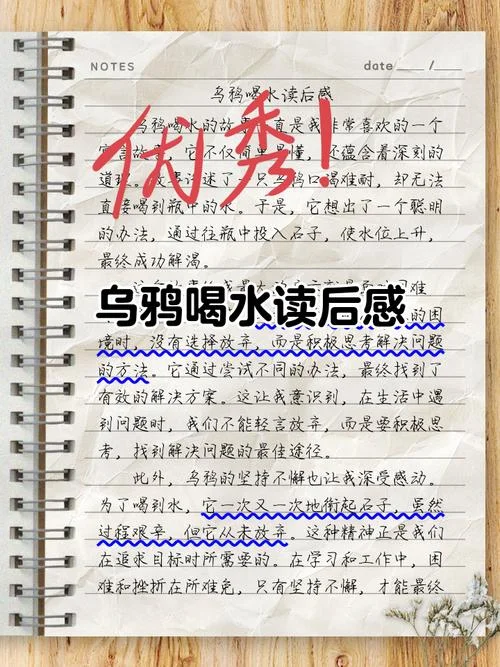 NOTES
date ____ / ____
乌鸦喝水读后感
优秀!
乌鸦喝水的故 直是我非常喜欢的一个
言故 它不仅简单 懂, 还蕴含着深刻的
道理。故事讲述了 只乌鸦口渴难耐, 却无法
直接喝到瓶中的水。于是, 它想出了一个聪明
的办法, 通过往瓶中投入石子, 使水位上升,
最终成功解渴。
难
乌鸦喝水读后感
的困
境时, 没有选择放弃, 而是积极思考解决问题
的方法。它通过尝试不同的办法, 最终找到了
有效的解决方案。这让我意识到, 在生活中遇
到问题时, 我们不能轻言放弃, 而是要积极思
考, 找到解决问题的最佳途径。
此外, 乌鸦的坚持不懈也让我深受感动。
为了喝到水, 它一次又一次地衔起石子, 虽然
过程艰辛, 但它从未放弃。这种精神正是我们
在追求目标时所需要的。在学习和工作中, 困
难和挫折在所难免, 只有坚持不懈, 才能最终